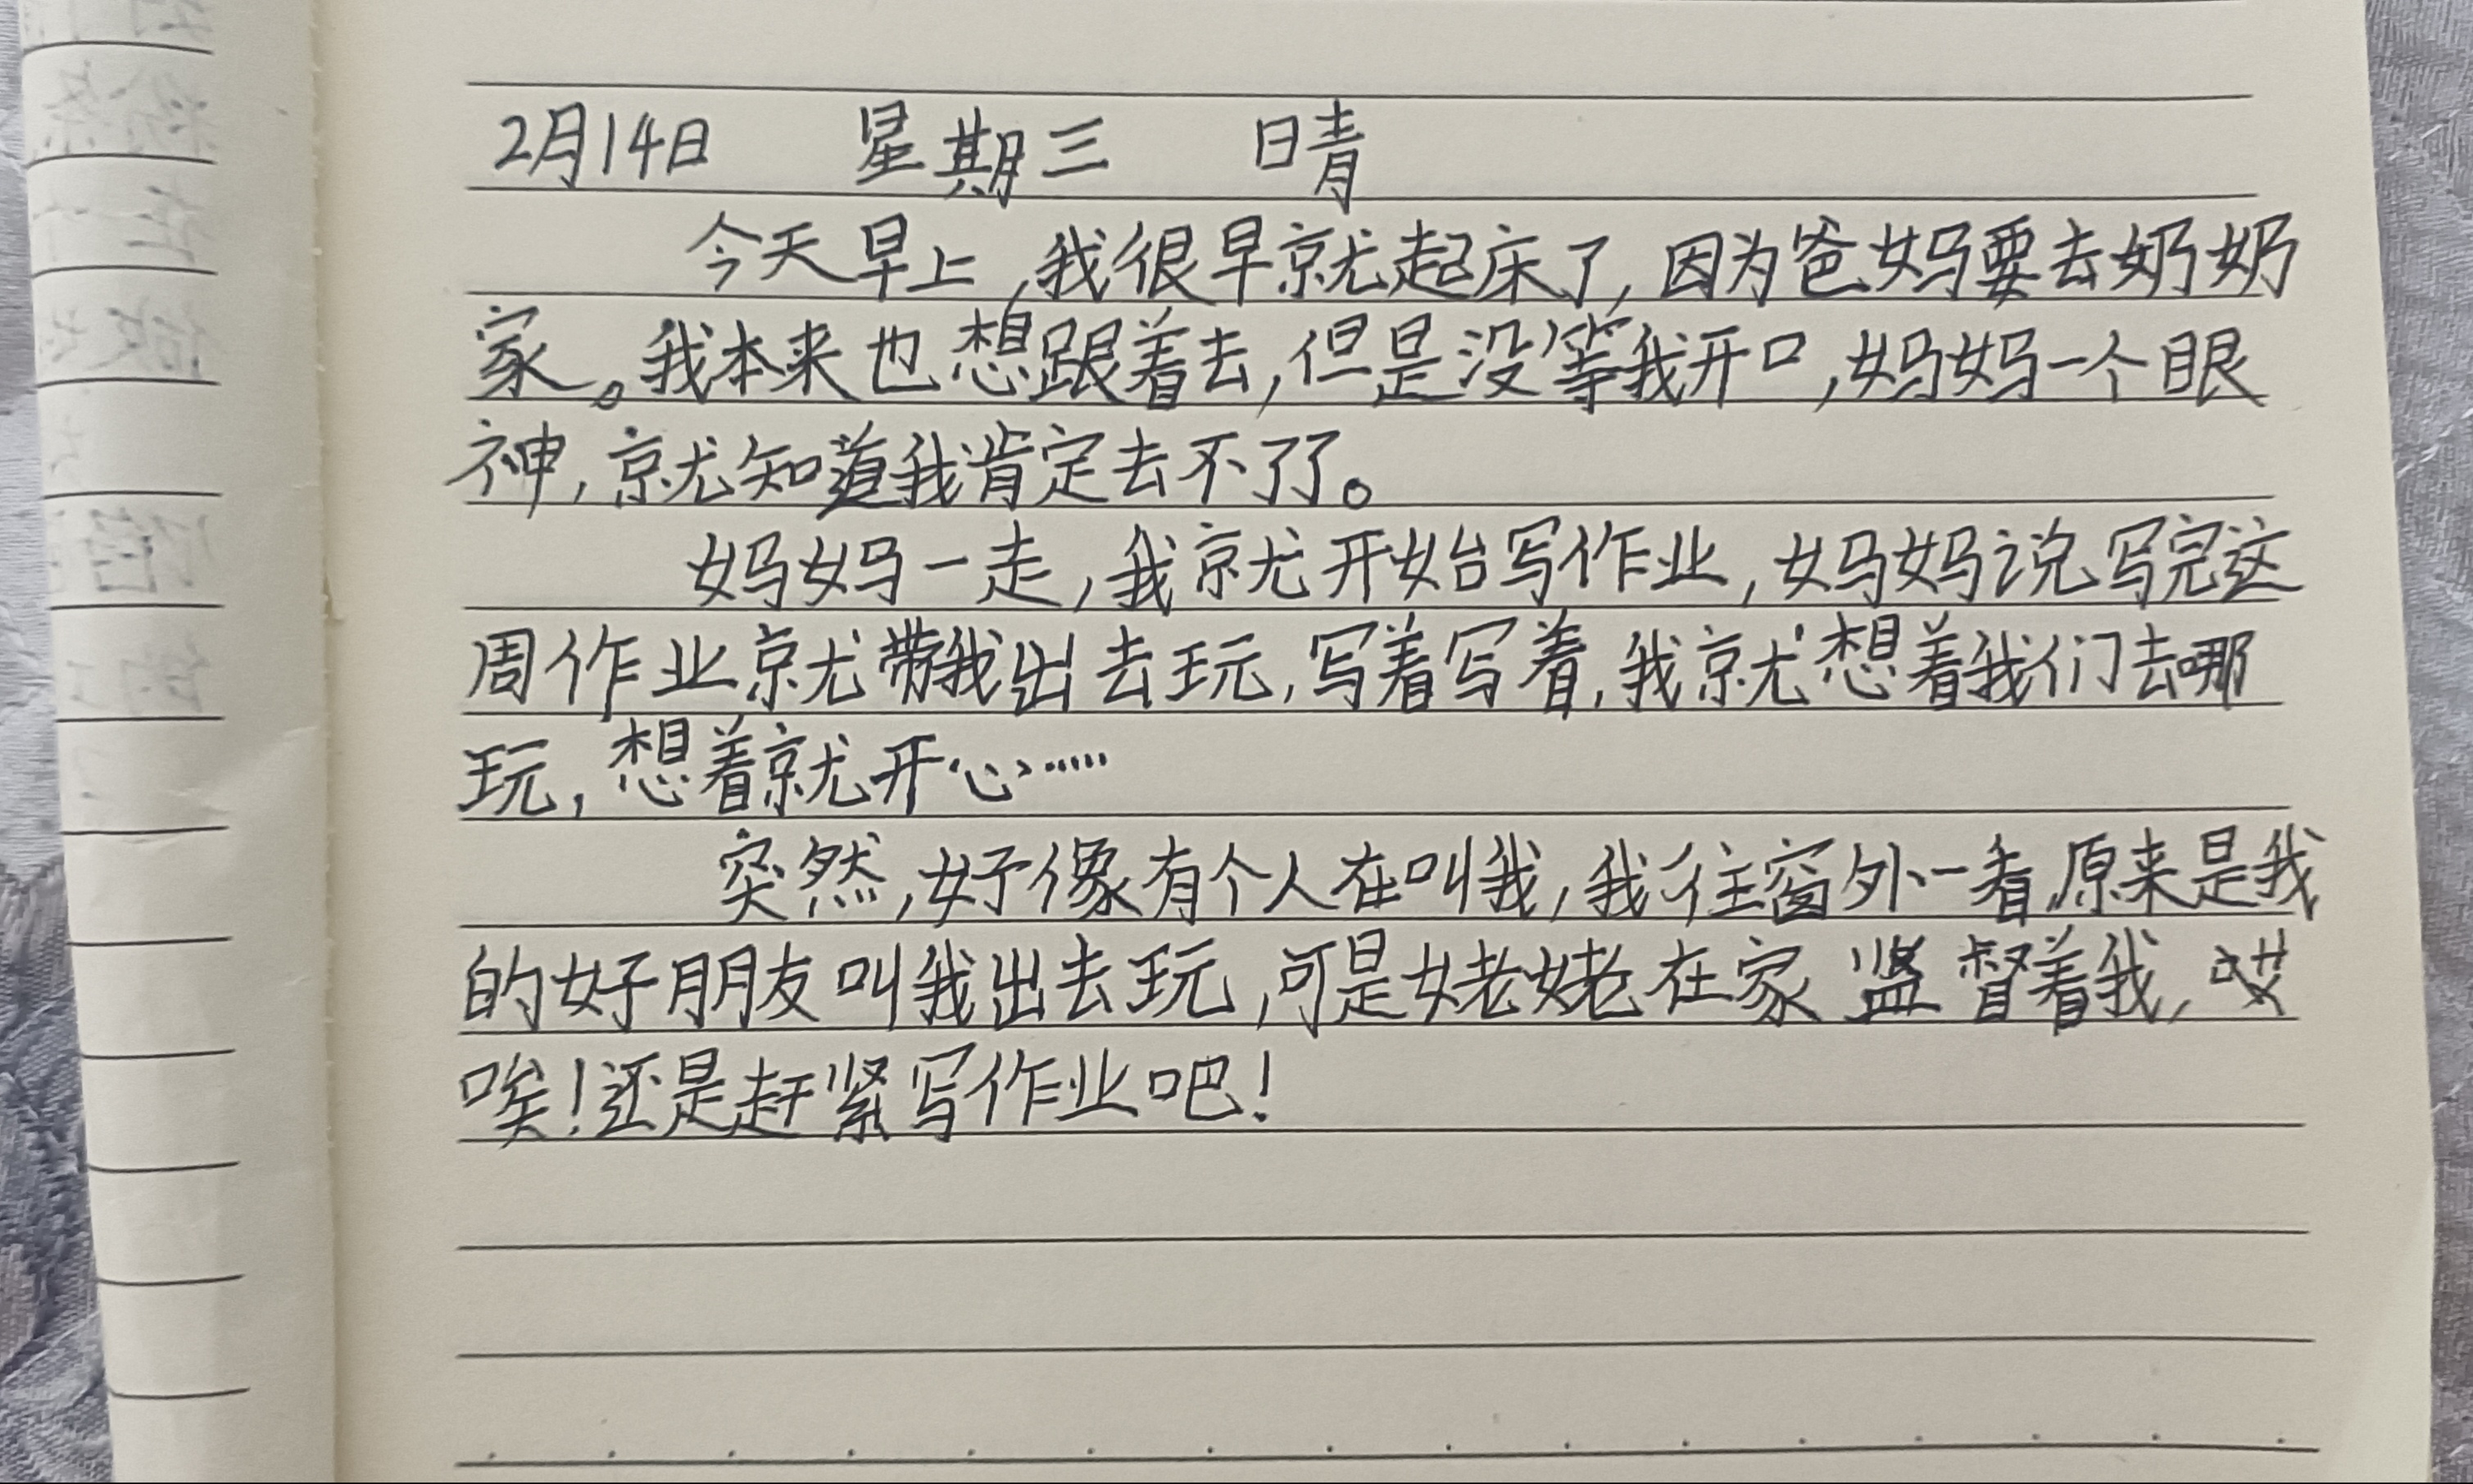 2月14日 星期三 晴
今天早上,我很早就起床了,因为爸妈要去奶奶
家。我本来也想跟着去,但是没等我开口,妈妈一个眼
神,就知道我肯定去不了了。
妈妈一走,我就开始写作业,妈妈说写完这
周作业就带我出去玩,写着写着,我就想着我们去哪
玩,想着就开心……
突然,好像有个人在叫我,我往窗外一看,原来是我
的好朋友叫我出去玩,可是姥姥在家监督着我,哎
唉!还是赶紧写作业吧!